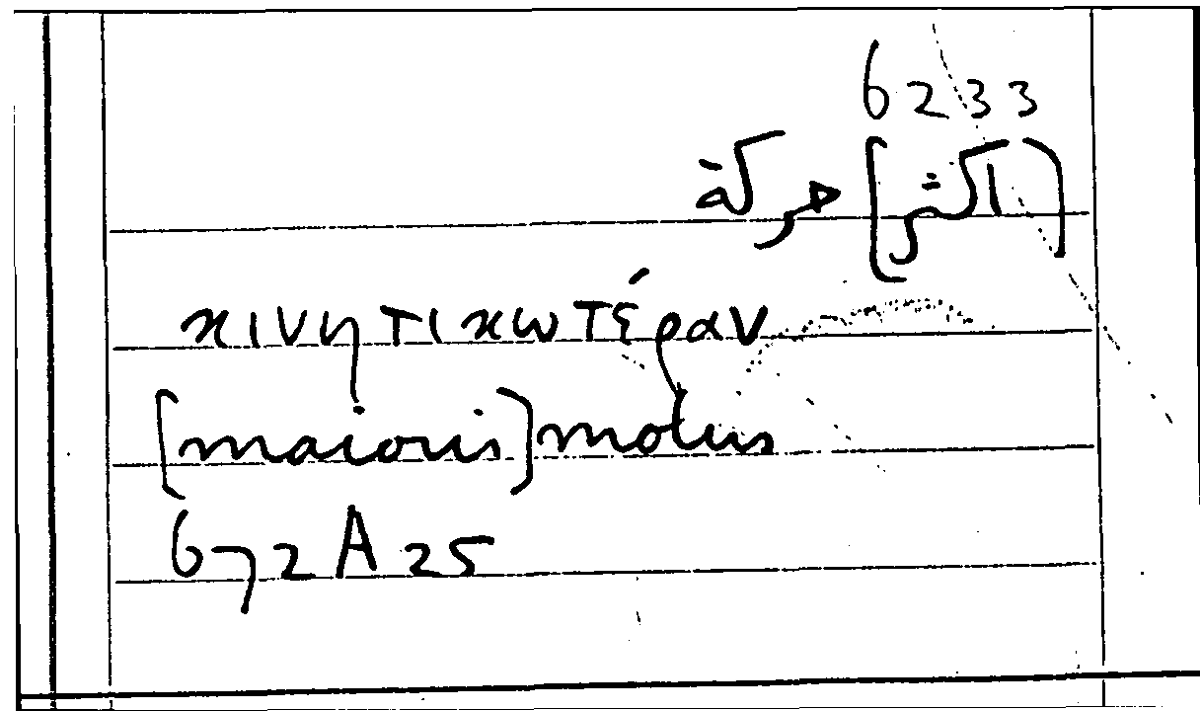 6233
[اكثر] حركة
κινητικωτέραν
[maioris] motus
672A25